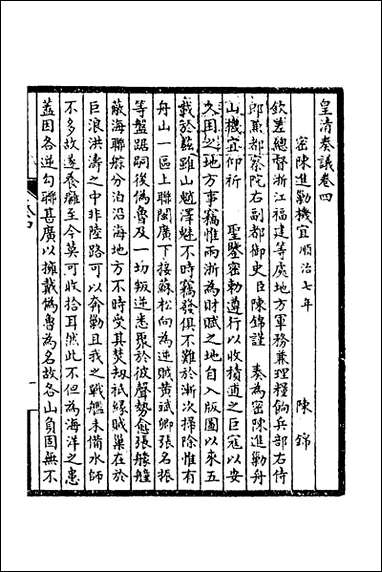 皇清奏議卷四
密陳進勦機宜順治七年 陳錦
欽差總督浙江福建等處地方軍務兼理糧餉兵部右侍
郎兼都察院右副都御史臣陳錦謹 奏為密陳進勦舟
山機宜仰祈 聖鑒密勅遵行以收積逋之巨寇以安
久困之地方事竊惟兩浙為財賦之地自入版圖以來五
載於茲雖山魈澤魅不時竊發俱不難於漸次掃除惟有
舟山一區上聯閩廣下接蘇松向為逆賊黃斌卿張名振
等盤踞嗣後偽魯及一切叛逆悉聚於彼聲勢愈張艨艟
蔽海聯䑸分泊沿海地方不時受其焚刼祇緣賊巢在於
巨浪洪濤之中非陸路可以奔勦且我之戰艦未備水師
不多故遂養癰至今莫可收拾耳然此不但為海洋之患
葢因各逆勾聯甚廣以擁戴偽魯為名故各山負固無不